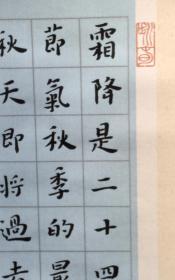 霜降是二十四
節氣秋季的最
秋天即將過去